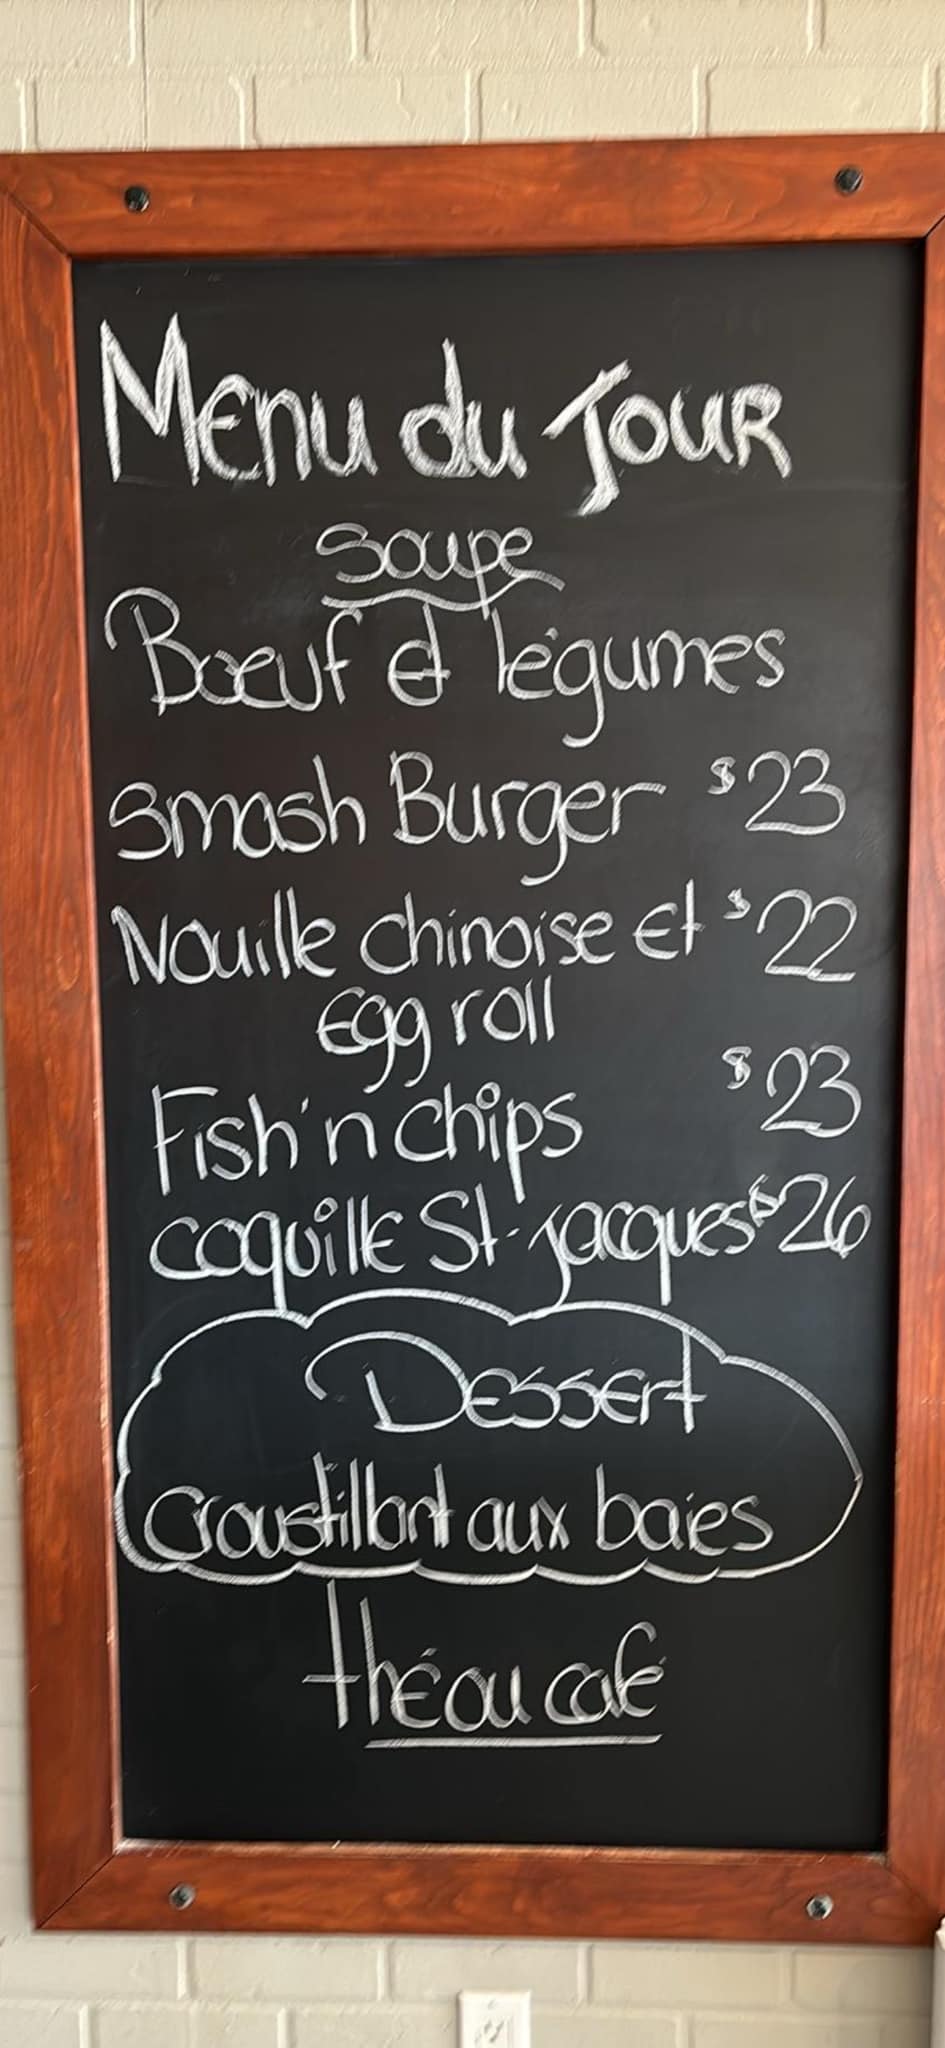 Menu du Jour
Soupe
Boeuf et légumes
Smash Burger $23
Nouille chinoise et $22
Egg roll
Fish'n chips $23
coquille St-jacques $26
Dessert
Croustillant aux baies
thé ou café